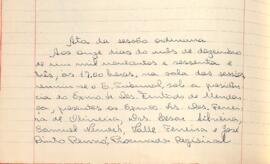 Ata da sessão ordinária
Aos onze dias do mês de dezembro
de um mil novecentos e sessenta e
três, às 17,00 horas, na sala das sessões
reuniu-se o E. Tribunal, sob a presidên
cia do Exmo. Sr. Des. Furtado de Mendon
ça, presentes os Exmos. Srs. Des. Ferrei
ra de Oliveira, Des. Cesar Silveira,
Samuel Valle Ferreira e José
Pinto Procurador Regional